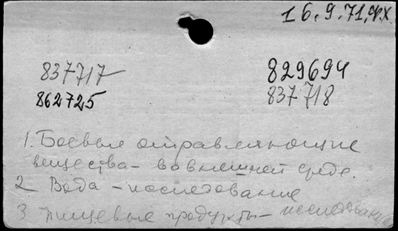 16.9.71.ФХ
837717 829694
862725 837718
1. Боевые отравляющие
вещества – во внешней среде.
2 Вода – исследование
3 Пищевые продукты – исследование